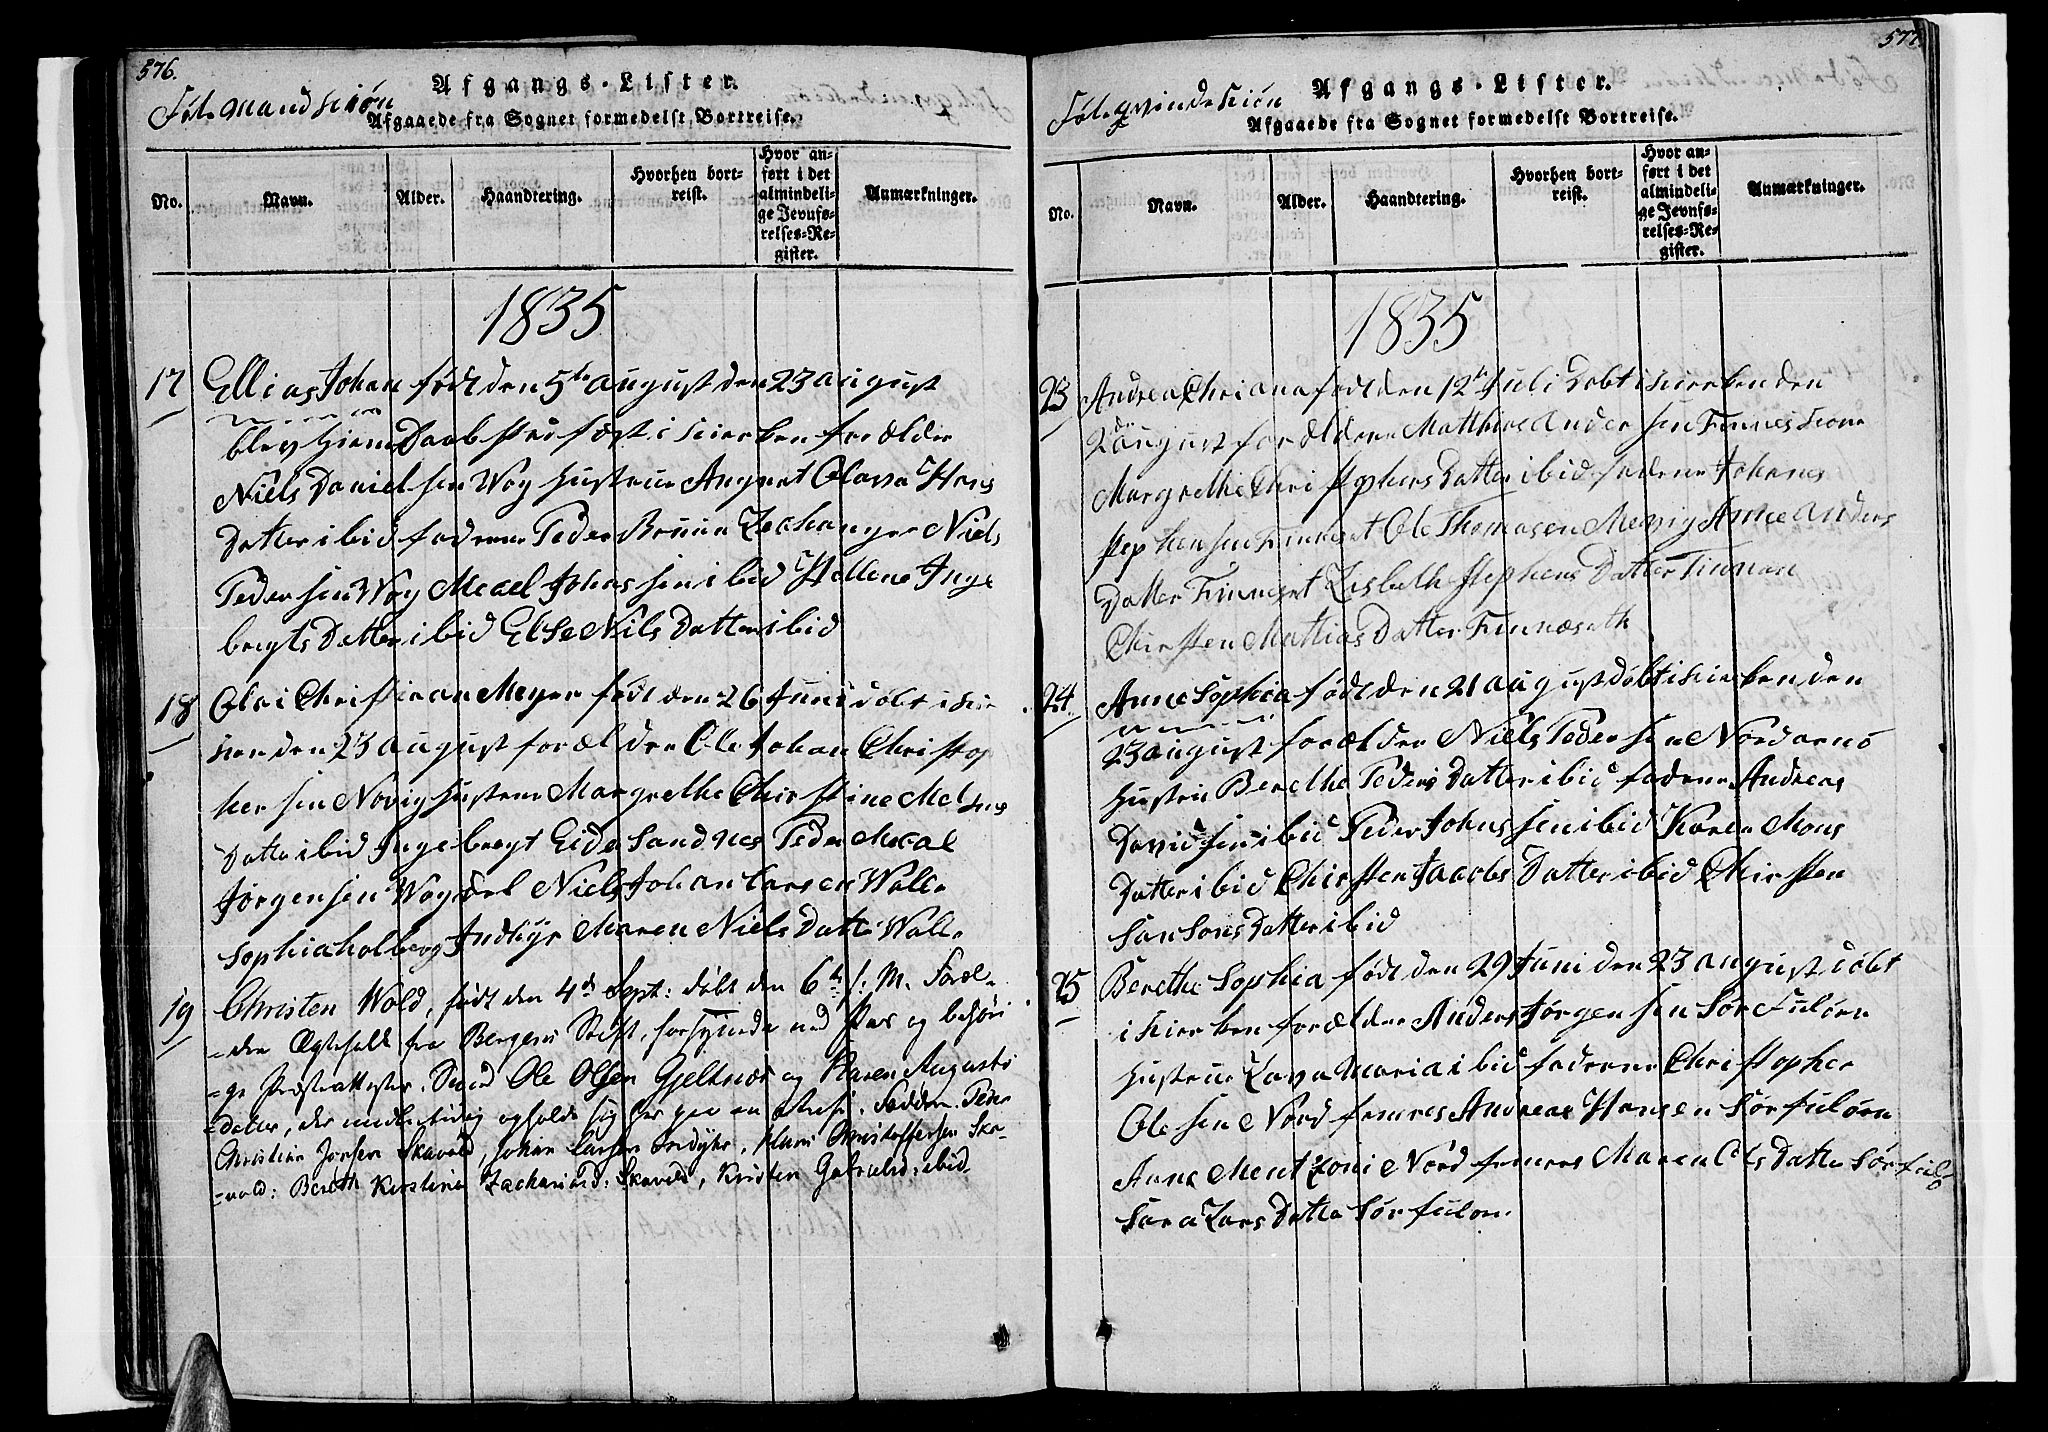 576.
Afgangs-Lister.
Afgaaede fra Sognet formedelst Bortreise.
No.
Navn.
Alder.
Haandtering.
Hvorhen bort-
reist.
Hvor an-
ført i det
almindeli-
ge Jevnfø-
relses-Re-
gister.
Anmærkninger.
1835
17
Ellias Johan født den 5te august den 23 august
blev Hieme Daab i kierken forælder
Niels Daniel sen Wog Hustrue Angnet Olava Hans
Datter ibid faderne Peder Bruun Niels
Peder sen Wog Mcael Johns sen ibid Hellene Inge
bregts Datter ibid Else Nils Datter ibid
18
Olai Christian Meyer født den 26 Juni døbt i kir
ken den 23 august forælder Ole Johan Christop
her sen Novig Hustrue Margrethe Chirstine
Datter ibid Ingebregt Eide Sandnes Peder Mecal
Jørgensen Niels Johan Larsen Wolle
Sophia holberg Indhyr Maren Niels Datte Wolle
19
Christen Wold, født den 4de Sept: døbt den 6te s: M. Foræl-
=dre Ægtefolk fra Bergens Stift, forsynede med Pas og behøri
=ge Præsteattester, Ole Olsen Gjeltnæs og Karen Augusti
=datter, der opholde sig her paa en Reise. Faddere. Peder
Christian Jensen Skavold, Johan Larsen Indhyr, Hans Christoffersen Ska-
=vold: Bereth Kirstina Zachariæd: Skavold, Kristen Gabrielsd: ibid.
577.
Afgangs-Lister.
Afgaaede fra Sognet formedelst Bortreise.
No.
Navn.
Alder.
Haandtering.
Hvorhen bort-
reist.
Hvor an-
ført i det
almindeli-
ge Jevnfø-
relses-Re-
gister.
Anmærkninger.
1835
23
Andrea Chriana født den 12te Juli Døbt i kierken den
2 august forældrene Matthias Ander sen Finnes
Margrethe Christophers Datter ibid faderne Johanes
Stephen sen Finneset Ole Thomasen Mevig Anne Anders
Datter Finneset Lisbeth Stephens Datter
Chirsten Mattias Datter Finnæseth
24.
Anne Sophia født den 21 august døbt i kierken den
23 august forælder Niels Peder sen Nordarnø
Hustru Berethe Peders Datter ibid faderne Andreas
David sen ibid Peder Johns sen ibid Karen Mons
Datter ibid Chirsten Jacobs Datter ibid Chirsten
San Sons Datter ibid
25
Berethe Sophia født den 29 Juni den 23 august døbt
i kierken forælder Anders Jørgen sen Sør Fuløen
Hustrue Lava Maria ibid faderne Christopher
Ole sen Nord Andreas Hansen Sør fuløen
Anne Mentzoni Nord Maren Ols Datte Sør fulø
Sara Lars Datte Sør fuløn.